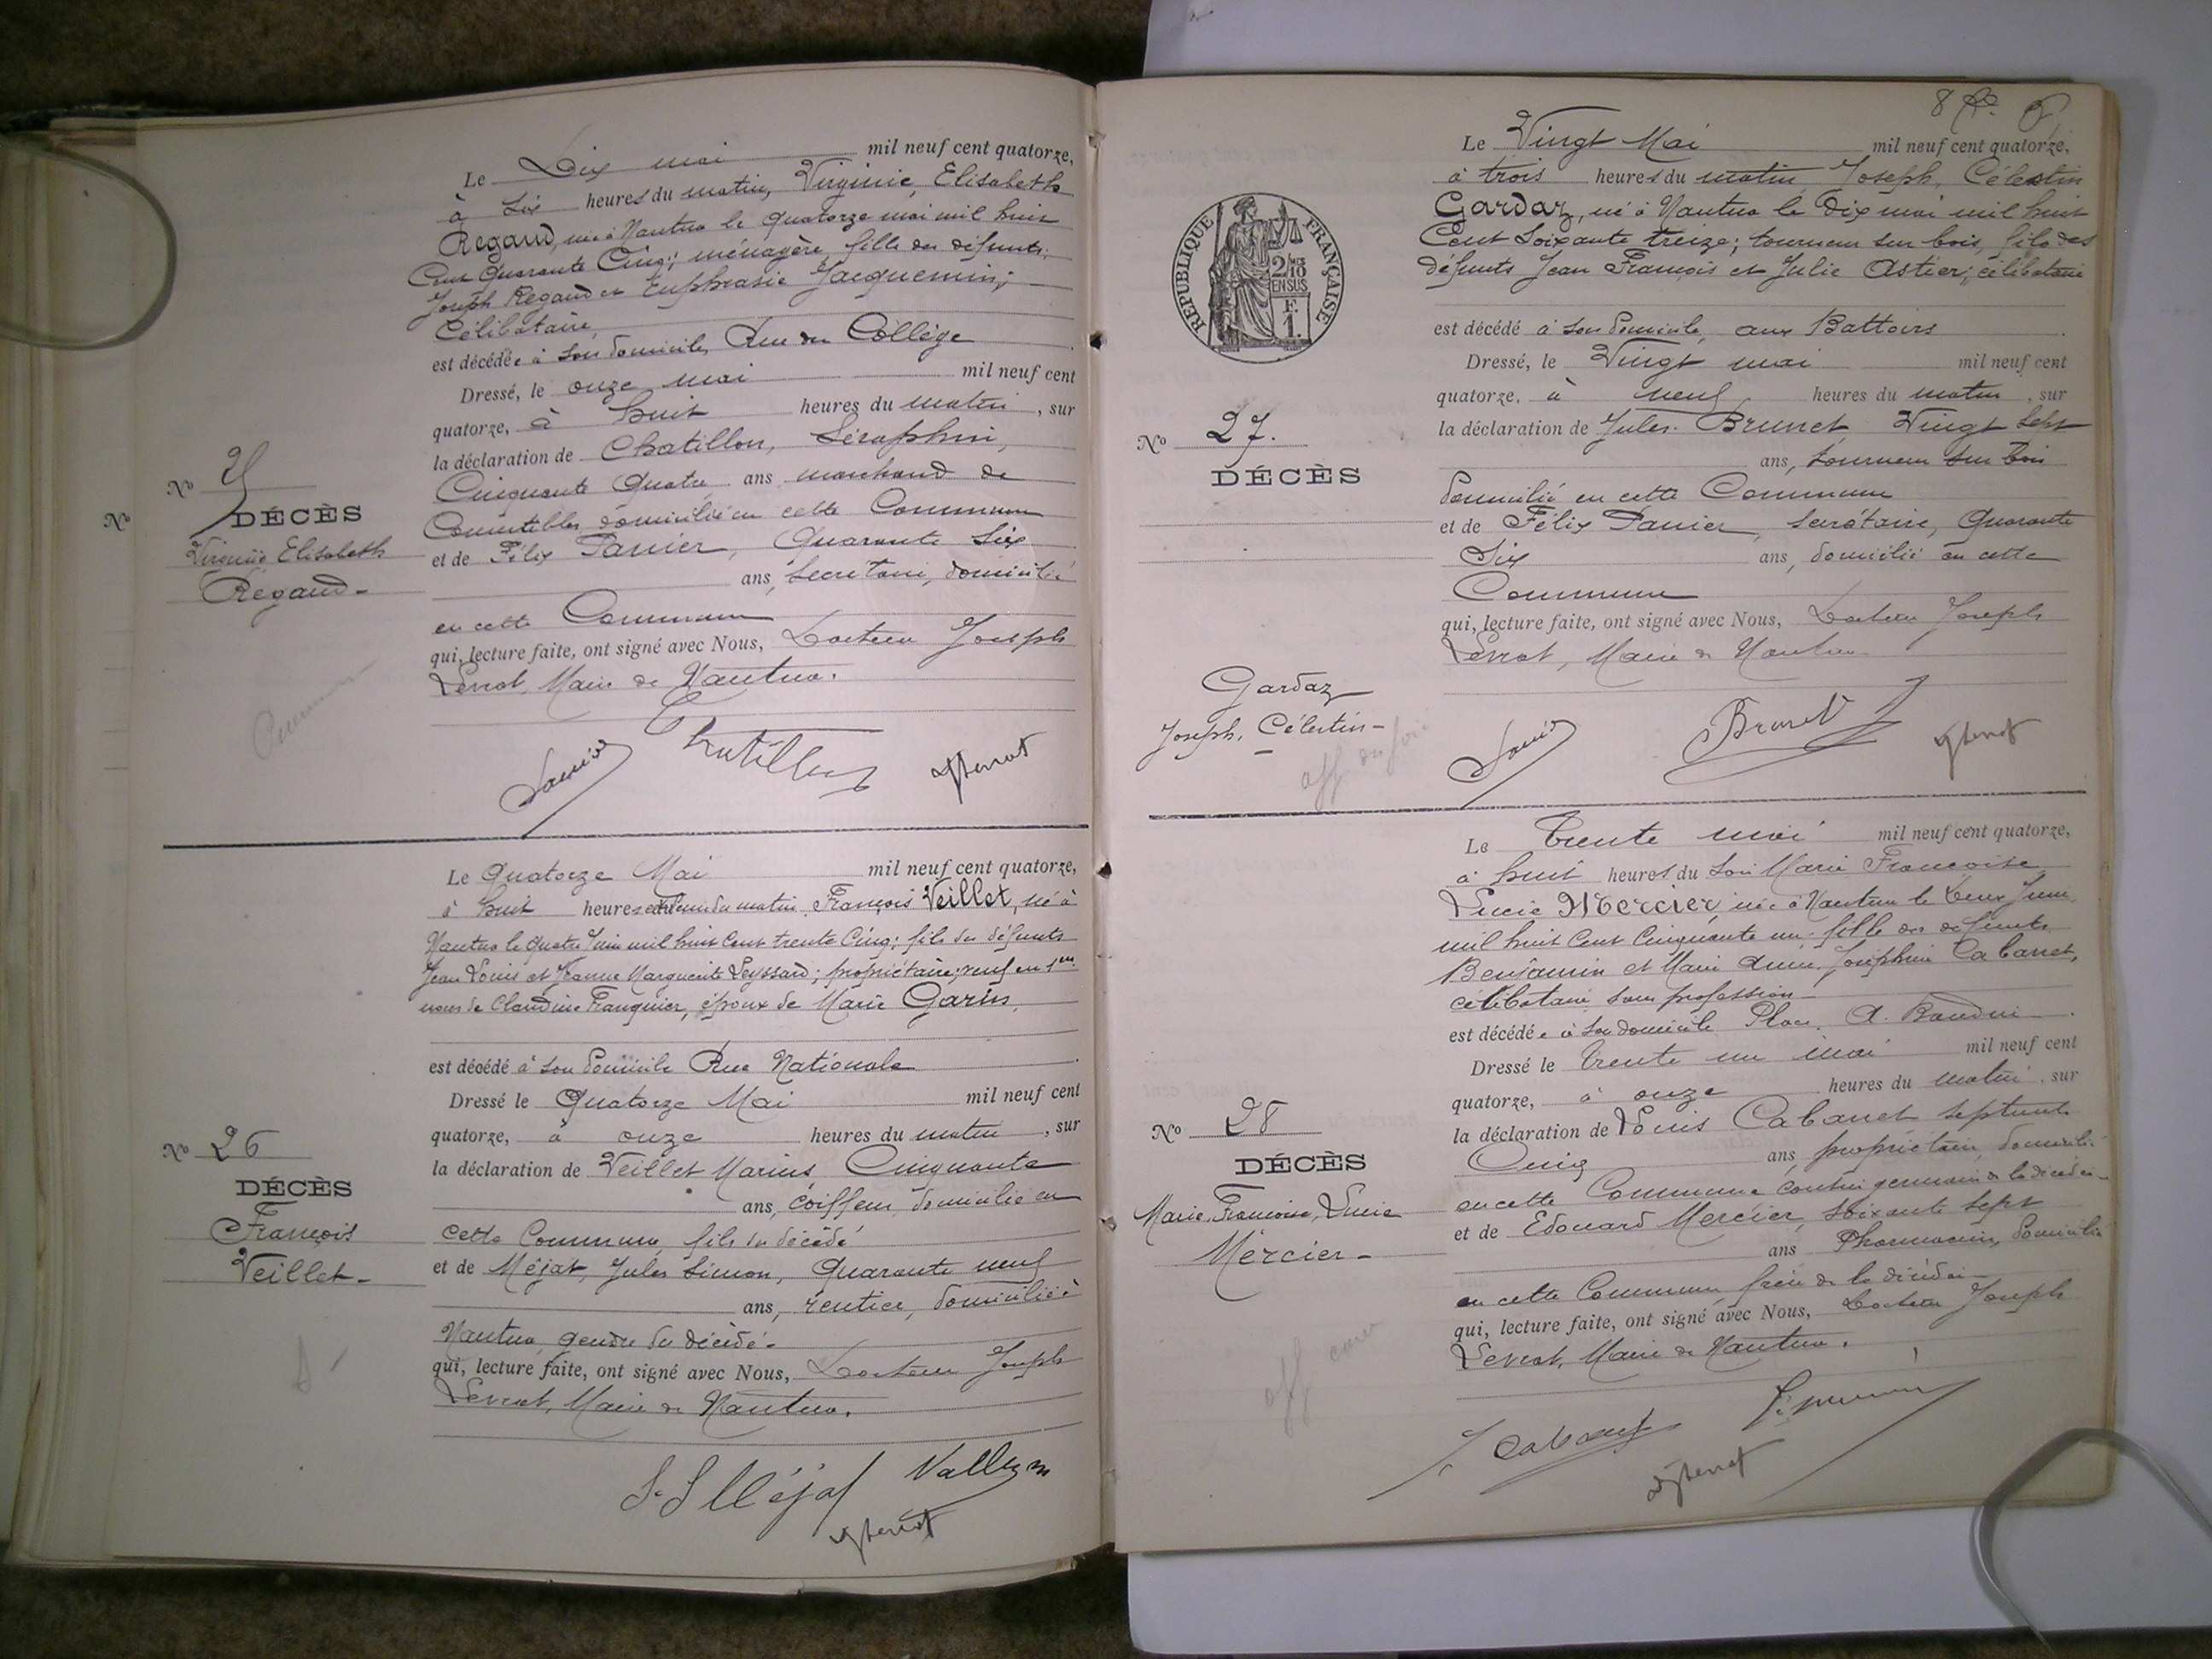 Le Dix mai mil neuf cent quatorze,
à six heures du matin, Virginie, Elisabeth
Regaud, née à Nantua le quatorze mai mil huit
Cent Quarante Cinq; ménagère, fille des défunts
Joseph Regaud et Euphrasie Jacquemin;
Célibataire,
est décédée à son domicile, Rue du Collège
Dressé, le onze mai mil neuf cent
quatorze, à huit heures du matin, sur
la déclaration de Chatillon, Séraphin,
Cinquante Quatre ans marchand de
Comestibles domicilié en cette Commune
et de Félix Panier, Quarante Six
ans, secrétaire, domicilié
en cette Commune
qui, lecture faite, ont signé avec Nous, Docteur Joseph
Levrat, Maire de Nantua.
No
No
DÉCÈS
Virginie Elisabeth
Régaud-
Panier Chatillon
Le Quatorze Mai mil neuf cent quatorze,
à huit heures et demie du matin François Veillet, né à
Nantua le quatre Juin mil huit Cent trente Cinq; fils des défunts
Jean Louis et Jeanne Marguerite Leyssard; propriétaire; veuf en 1res
noces de Claudine Franquier, époux de Marie Garin,
est décédé à son domicile Rue Nationale
Dressé le Quatorze Mai mil neuf cent
quatorze, à onze heures du matin, sur
la déclaration de Veillet Marius, Cinquante
ans, coiffeur, domicilié en
cette Commune, fils du décédé
et de Méjat, Jules Simon, Quarante neuf
ans, rentier, domicilié à
Nantua, gendre du décédé-
qui, lecture faite, ont signé avec Nous, Docteur Joseph
Levrat, Maire de Nantua.
No 26
DÉCÈS
François
Veillet-
Méjat
8
Le Vingt Mai mil neuf cent quatorze,
à trois heures du matin Joseph, Célestin
Gardaz, né à Nantua le Dix mai mil huit
Cent Soixante treize; tourneur sur bois, fils des
défunts Jean François et Julie Astier; célibataire
est décédé à son domicile, aux Battoirs
Dressé, le Vingt mai mil neuf cent
quatorze, à neuf heures du matin, sur
la déclaration de Jules Brunet Vingt Sept
ans, tourneur sur bois
domicilié en cette Commune
et de Félix Panier, secrétaire, Quarante
Six ans, domicilié en cette
Commune
qui, lecture faite, ont signé avec Nous, Docteur Joseph
Levrat, Maire de Nantua
RÉPUBLIQUE FRANÇAISE
2/10
EN SUS
F.
1.
No 27.
DÉCÈS
Gardaz
Joseph, Célestin-
Panier Brunet
Le Trente mai mil neuf cent quatorze,
à huit heures du soir Marie Françoise
Lucie Mercier, née à Nantua le Deux Juin
mil huit Cent Cinquante un fille des défunts
Benjamin et Marie Josephine Cabanet,
célibataire sans profession
est décédée à son domicile Place A. Baudin
Dressé le trente un mai mil neuf cent
quatorze, à onze heures du matin, sur
la déclaration de Louis Cabanet septante
Cinq ans, propriétaire, domicilié
en cette Commune cousin germain de la décédée-
et de Edouard Mercier, soixante sept
ans Pharmacien, domicilié
en cette Commune, frère de la décédée
qui, lecture faite, ont signé avec Nous, Docteur Joseph
Levrat, Maire de Nantua.
No 28
DÉCÈS
Marie, Françoise, Lucie
Mercier-
Cabanet